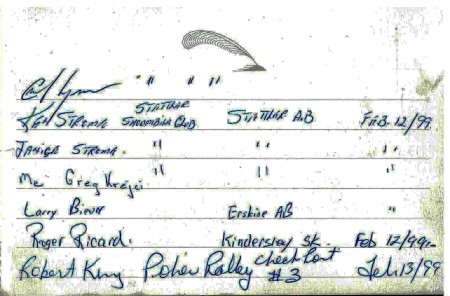 " " "
Ken Stroma Snowmobile Club Stettler AB Feb. 12/99
Janice Stroma. " " "
Me Greg Krejci "
Larry Erskine AB "
Roger Ricard. Kindersley SK. Feb 12/99.
Robert King Poker Ralley Check Point #3 Feb. 13/99